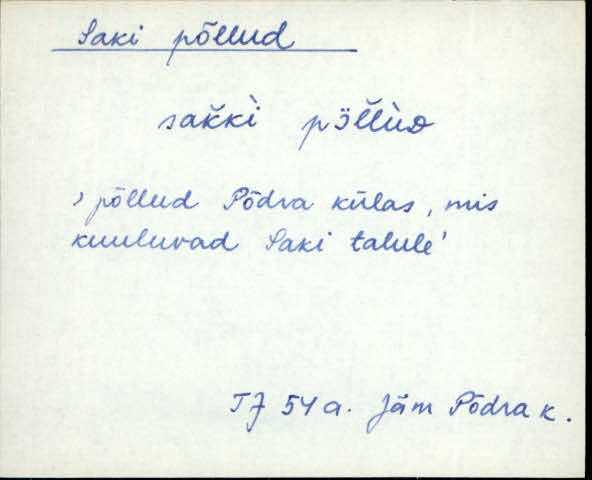 Saki põllud
sak̆kì pö̆l̆lùᴅ
› põllud Põdra külas, mis
kuuluvad Saki talule'
TJ 54 a. Jäm Põdra k.